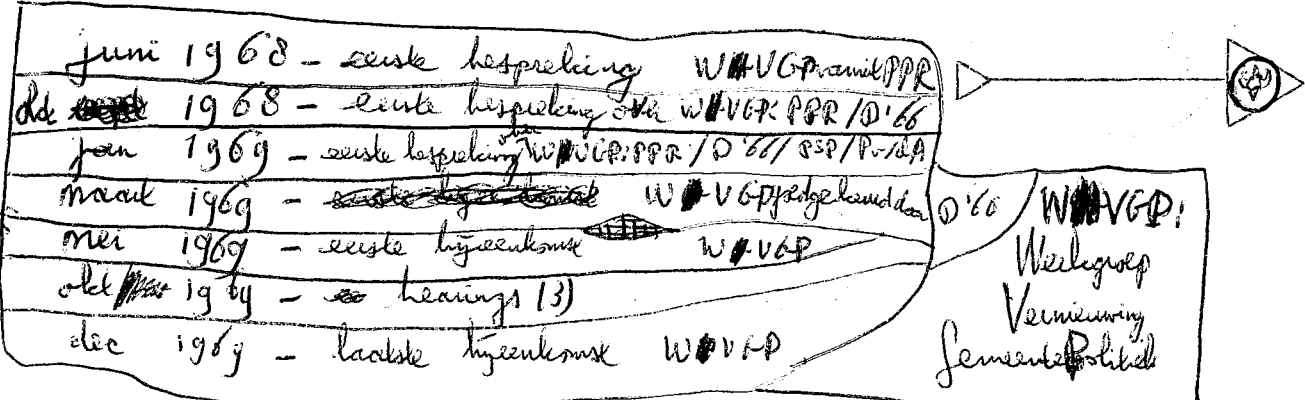 juni 1968 - eerste bespreking WVGP vanuit PPR
okt 1968 - eerste bespreking over WVGP: PPR / D'66
jan 1969 - eerste bespreking over WVGP: PPR / D'66 / PSP / PvdA
maart 1969 - WVGP goedgekeurd door D'66
mei 1969 - eerste bijeenkomst WVGP
okt 1969 - hearings (3)
dec 1969 - laatste bijeenkomst WVGP
WVGP:
Werkgroep
Vernieuwing
GemeentePolitiek